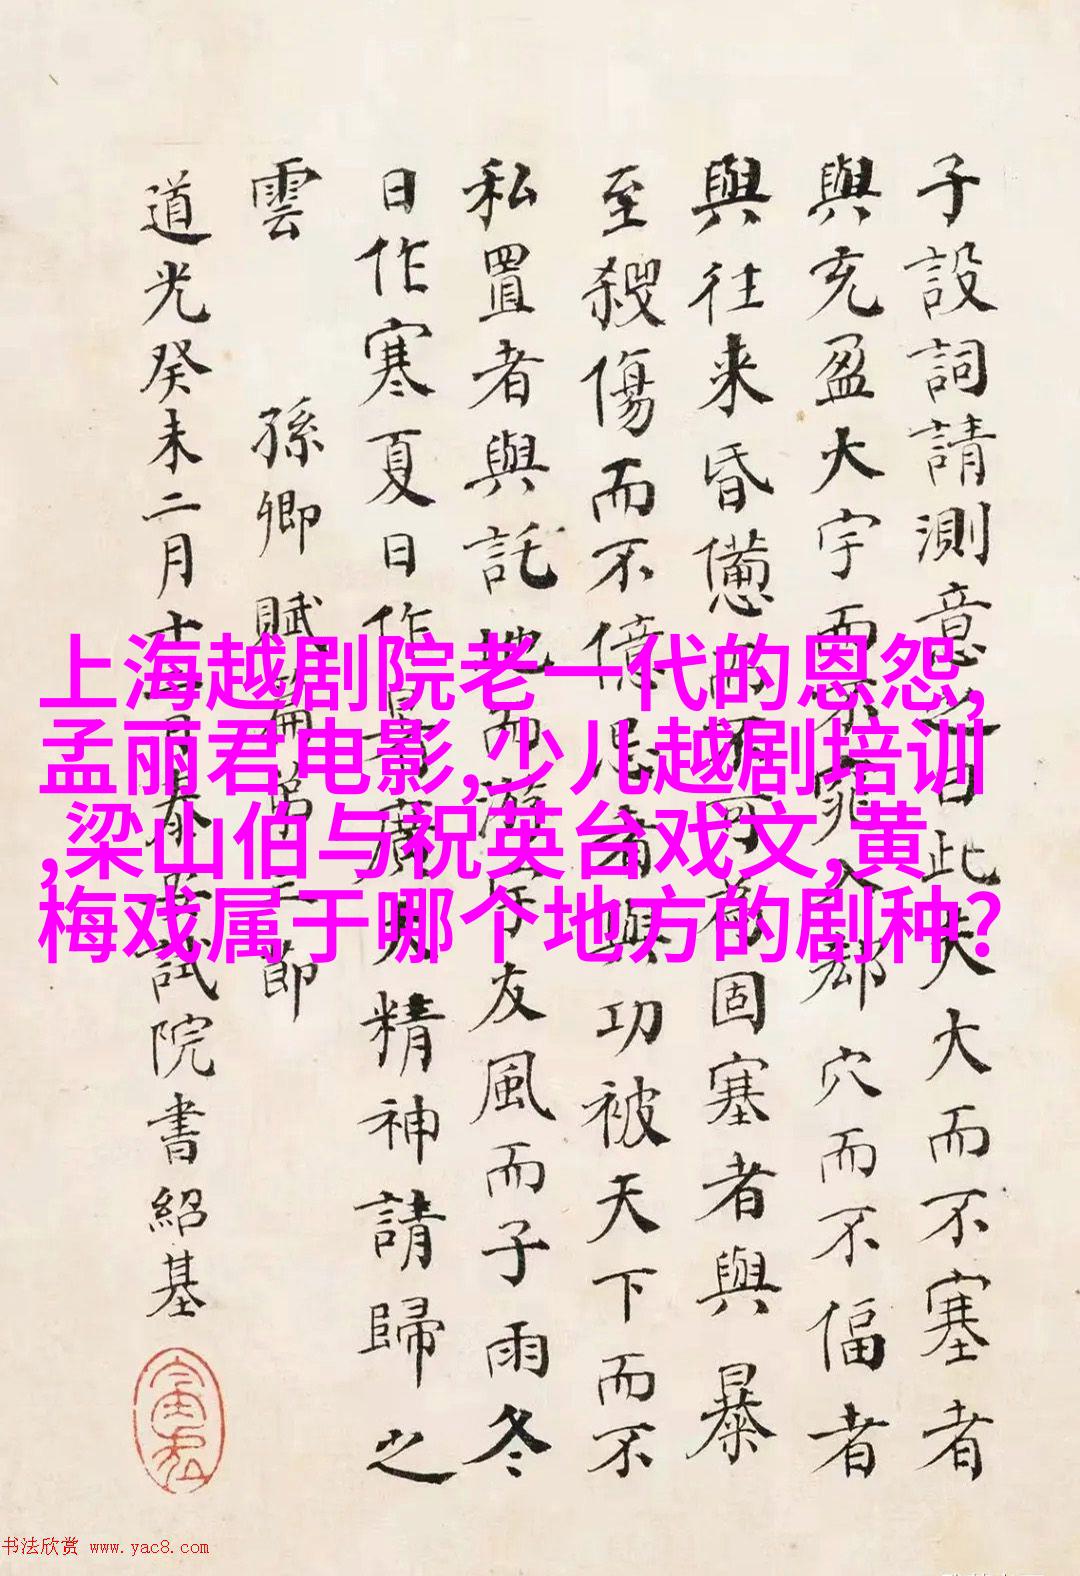 上海越剧院老一代的恩怨,
孟丽君电影,少儿越剧培训
,梁山伯与祝英台戏文,黄
梅戏属于哪个地方的剧种?
子設詞請測意之曰此夫大而不塞者
與充盈大宇而不窕入郄穴而不偪者
與往来昏憊而不可為固塞者與暴
至殺傷而不億忌者與功被天下而不
私置者與託地而游宇友風而子雨冬
日作寒夏日作暑廣大精神請歸之
雲
孫卿賦篇第二節
道光癸未二月十
春
試院書紹基
书法欣赏 www.yac8.com